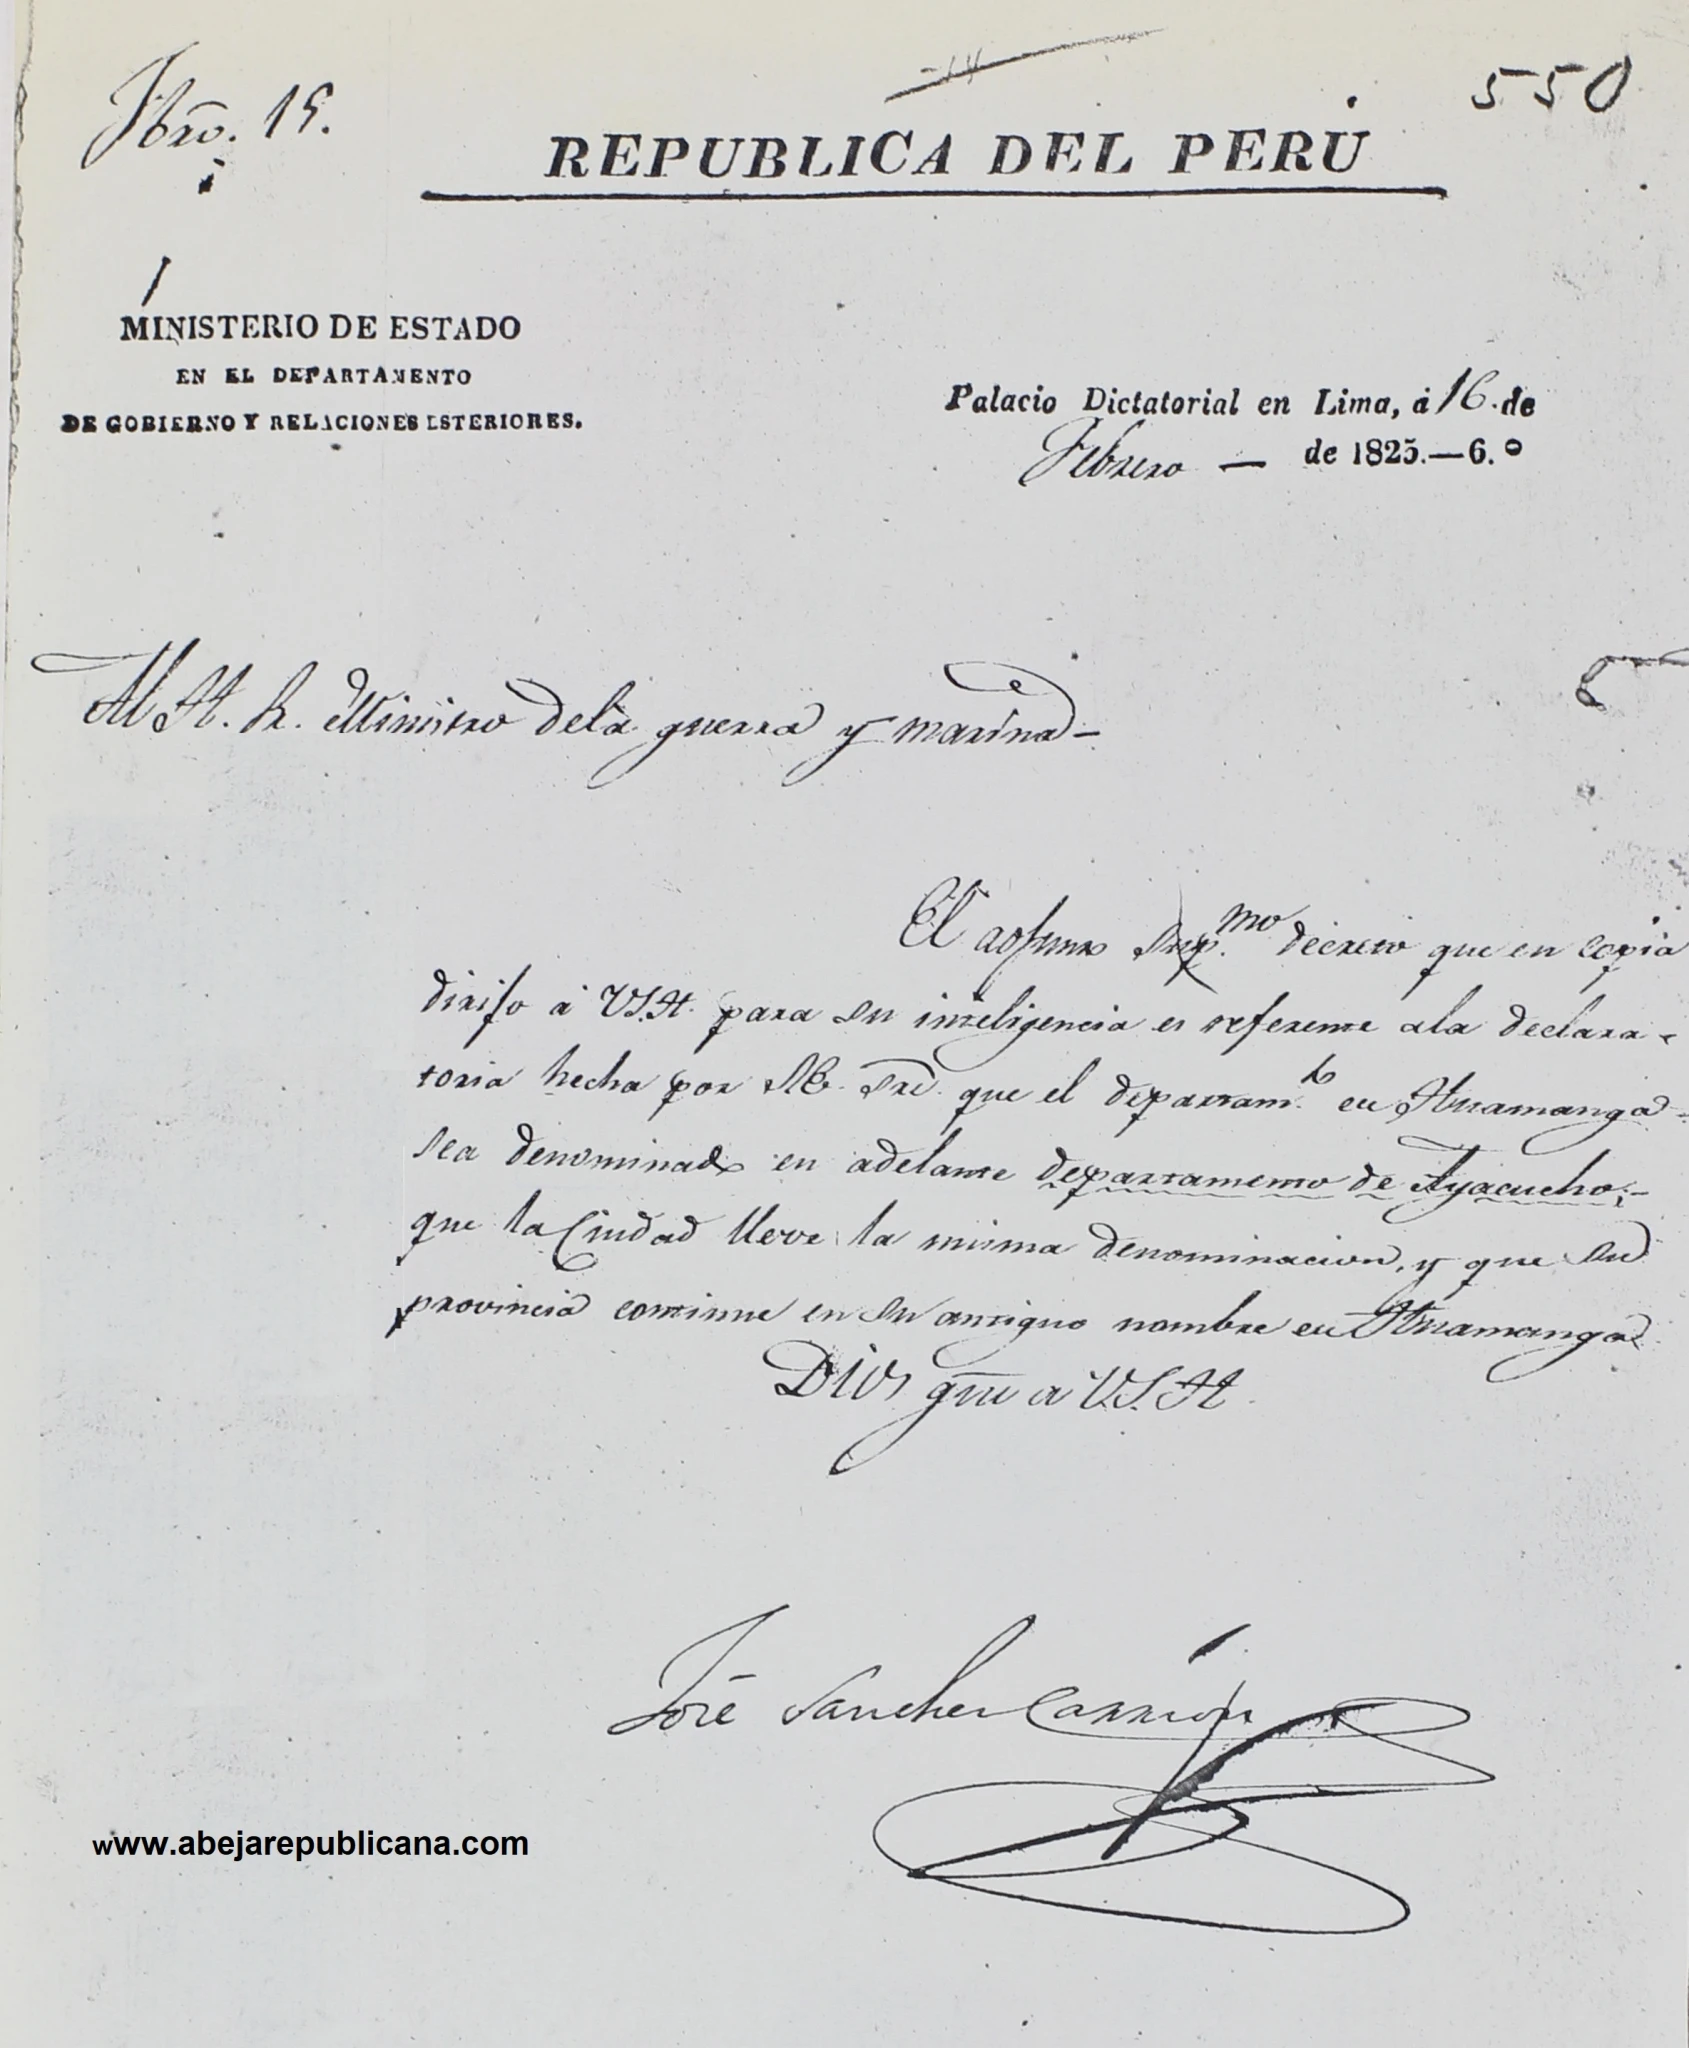 Fbro. 15.
550
REPUBLICA DEL PERÚ
MINISTERIO DE ESTADO
EN EL DEPARTAMENTO
DE GOBIERNO Y RELACIONES ESTERIORES.
Palacio Dictatorial en Lima, á 16. de
Febrero — de 1825.—6.º
Al H. S. Ministro dela guerra y marina–
El adjunto Sup.mo decreto que en copia
dirijo á V.S.H. para su inteligencia es referente ala declara-
toria hecha por S.E. que el departam.to de Huamanga
sea denominado en adelante departamento de Ayacucho;–
que la Ciudad lleve la misma denominacion, y que su
provincia continue en su antiguo nombre de Huamanga
Dios gue a V.S.H.
José Sanchez Carrión
www.abejarepublicana.com